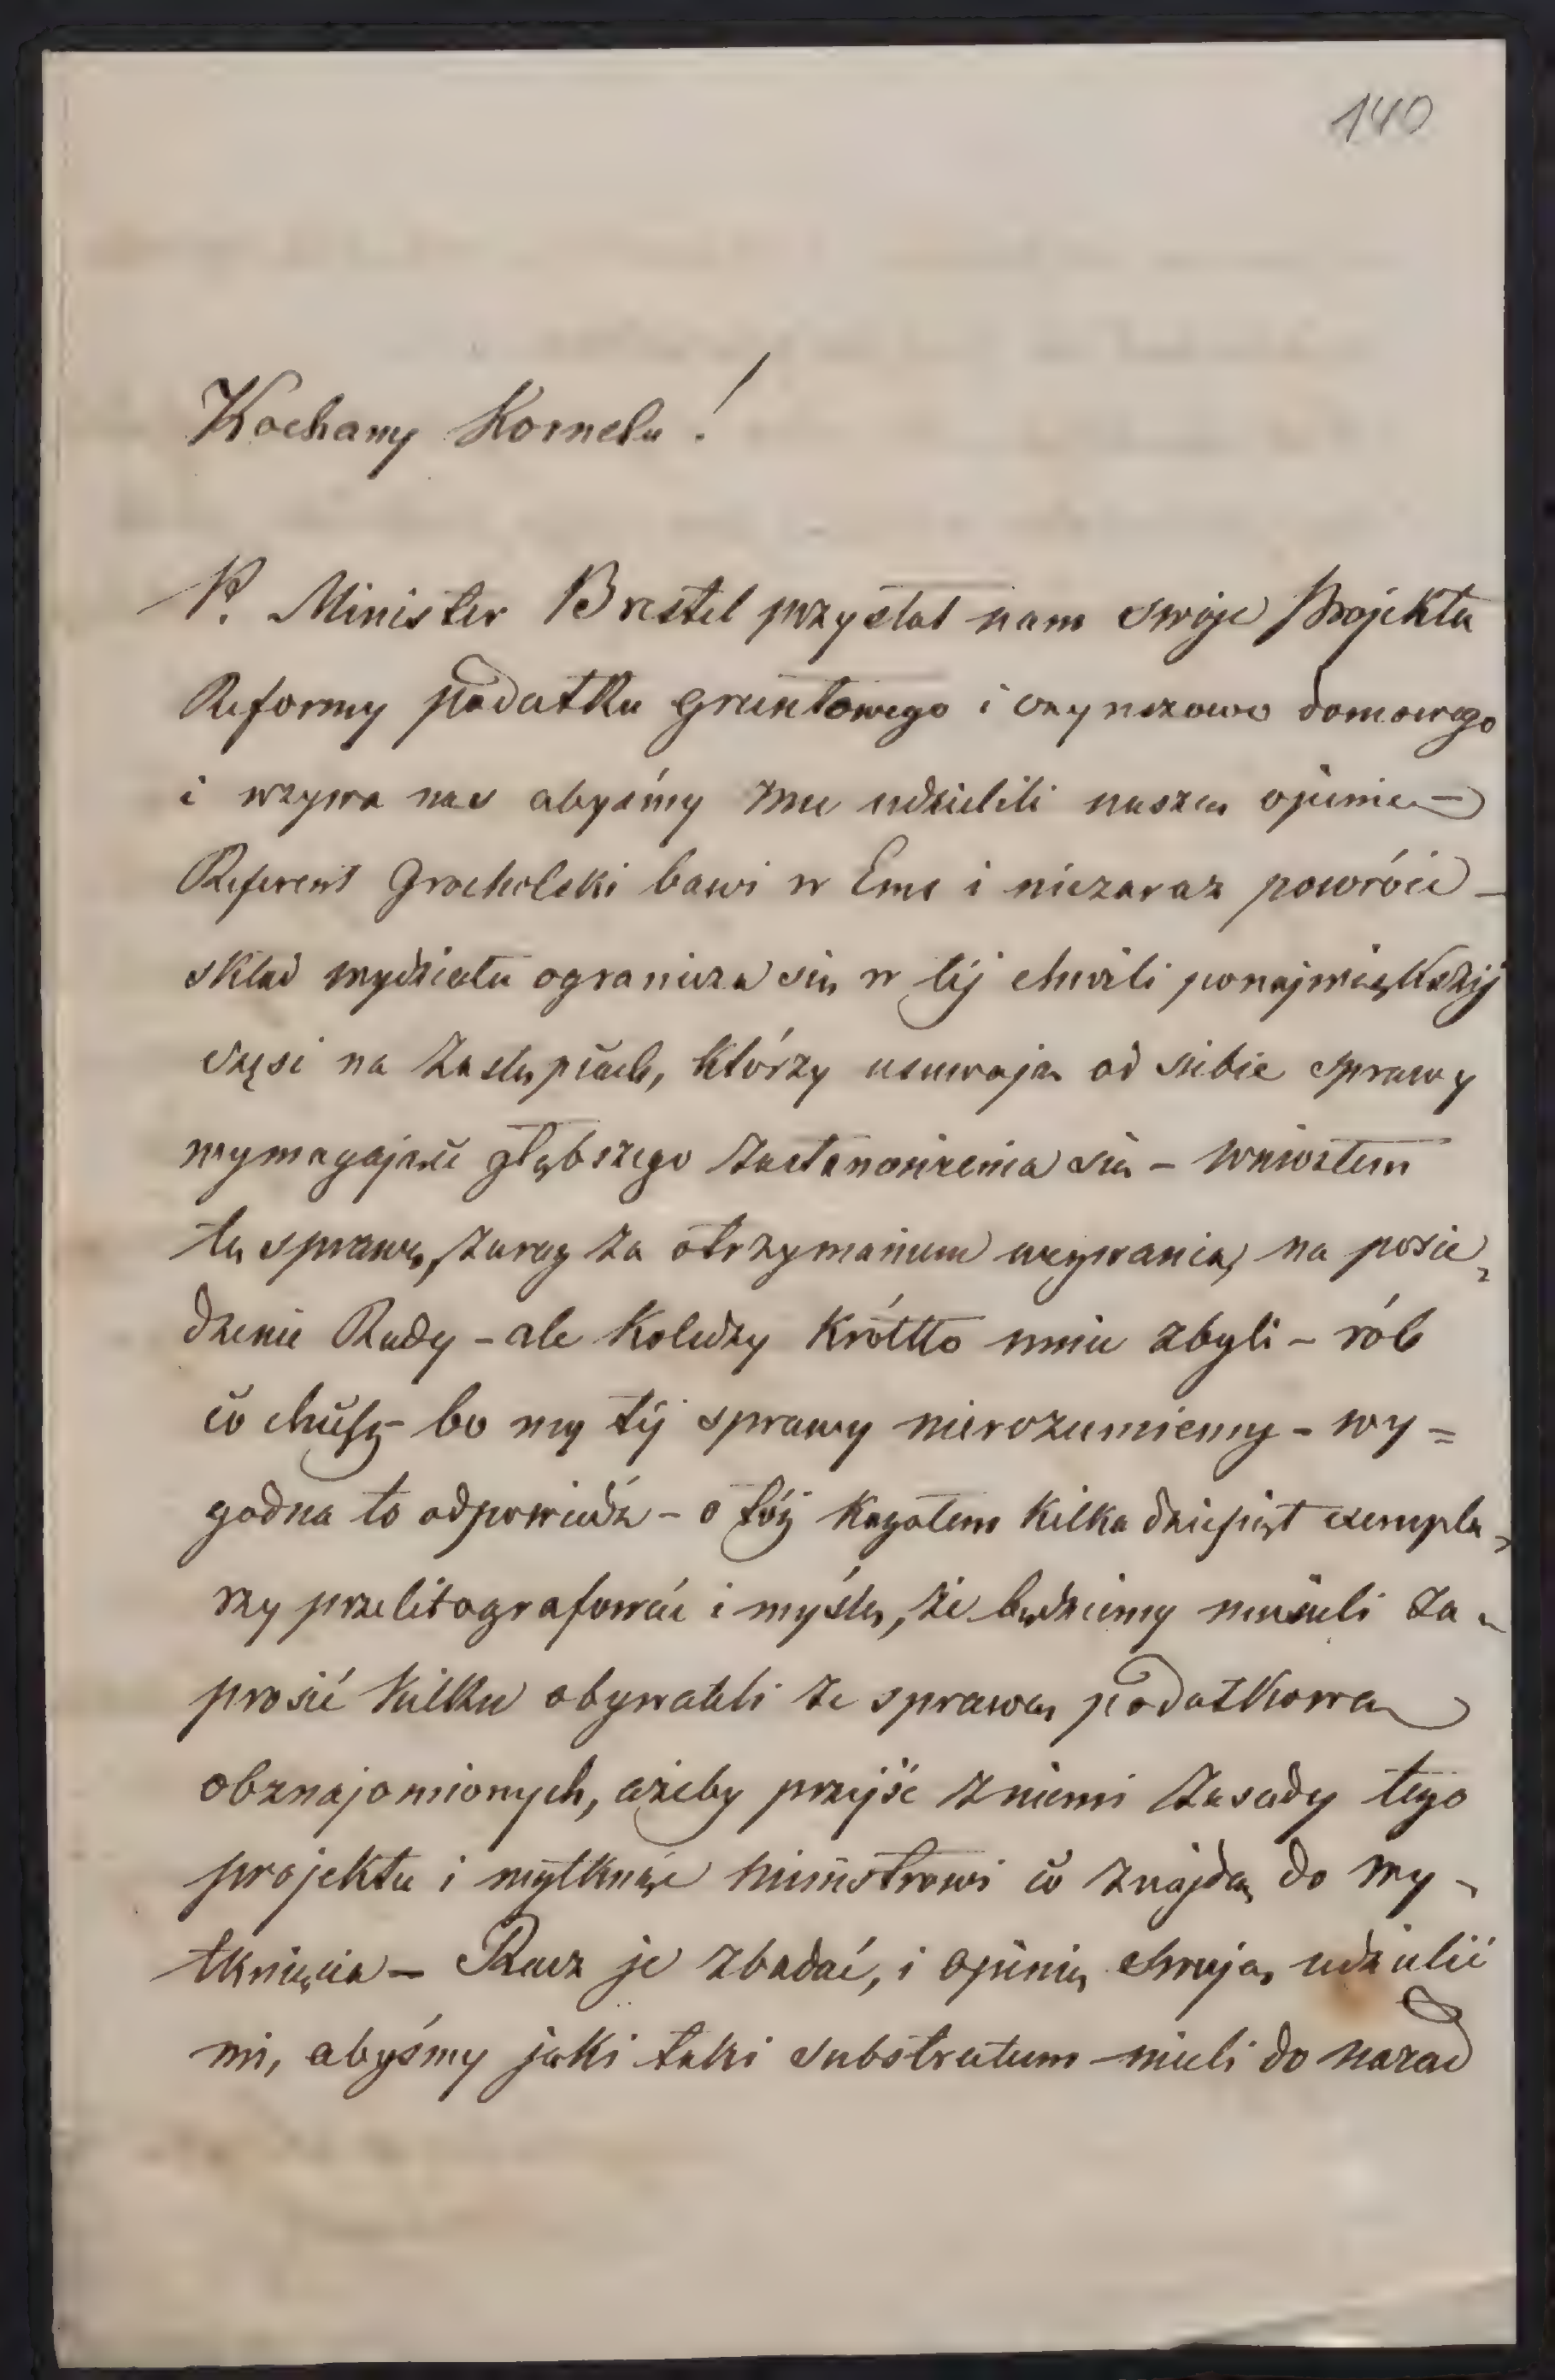 140
Kochany Kornelu!
P. Minister Brestel przysłał nam swoje projekta
Reformy podatku gruntowego i czynszowo domowego
i wzywa nas abyśmy mu udzielili naszą opinię –
Referent Grocholski bawi w Ems i niezaraz powróci –
skład wydziału ogranicza się w tej chwili ponajwiększej
części na zastępcach, którzy usuwają od siebie sprawy
wymagające głębszego zastanowienia się – wniosłem
tę sprawę, zaraz za otrzymaniem wezwania, na posie„
dzenie Rady – ale koledzy krótko mnie zbyli – rób
co chcesz – bo my tej sprawy nierozumiemy – wy=
godna to odpowiedź – o tóż kazałem kilka dziesiąt exempla„
rzy przelitografować i myślę, że będziemy musieli za„
prosić kilku obywateli ze sprawą podatkową
obznajomionych, ażeby przejść z niemi zasady tego
projektu i wytknąć ministrowi co znajdą do wy„
tknięcia – Racz je zbadać, i opinię swoją udzielić
mi, abyśmy jaki taki substratum mieli do narad